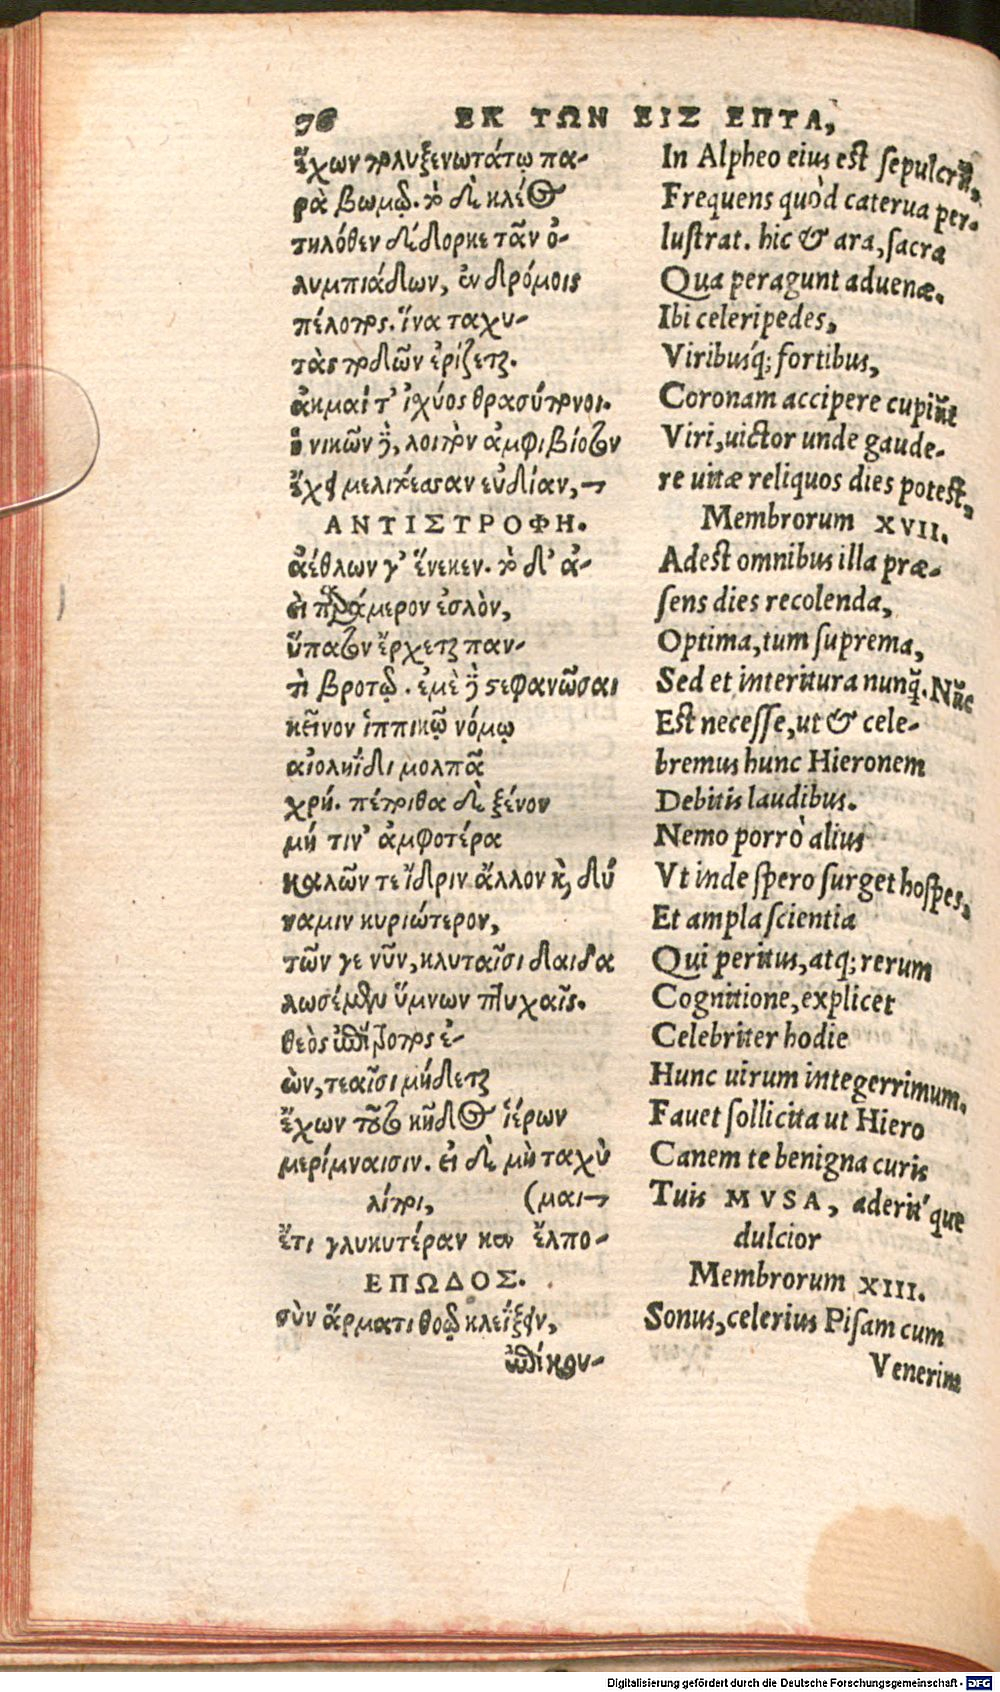 76 ΕΚ ΤΩΝ ΕΙΣ ΕΠΤΑ,
ἔχων πολυξενωτάτῳ πα-
ρὰ βωμῷ. τὸ δὲ κλέος
τηλόθεν δέδορκε τᾶν ὀ-
λυμπιάδων, ἐν δρόμοις
πέλοπος. ἵνα ταχυ-
τὰς ποδῶν ἐρίζεται.
ἀκμαί τ' ἰχύος θρασύπονοι.
ὁ νικῶν δὲ, λοιπὸν ἀμφὶ βίοτον
ἔχει μελιτόεσσαν εὐδίαν,
ΑΝΤΙΣΤΡΟΦΗ.
ἀέθλων γ' ἕνεκεν. τὸ δ' ἀ-
εὶ παράμερον ἐσλὸν,
ὕπατον ἔρχεται παν-
τὶ βροτῷ. ἐμὲ δὲ στεφανῶσαι
κεῖνον ἱππικῷ νόμῳ
αἰοληΐδι μολπᾷ
χρή. πέποιθα δὲ ξένον
μή τιν' ἀμφοτέρα
καλῶν τε ἴδριν ἄλλον καὶ δύ
ναμιν κυριώτερον,
τῶν γε νῦν, κλυταῖσι δαιδα
λωσέμεν ὕμνων πτυχαῖς.
θεὸς ἐπίτροπος ἐ-
ὼν, τεαῖσι μήδεται
ἔχων τοῦτο κῆδος ἱέρων
μερίμναισιν. εἰ δὲ μὴ ταχὺ
λίποι, (μαι
ἔτι γλυκυτέραν κεν ἔλπο-
ΕΠΩΔΟΣ.
σὺν ἅρματι θοῷ κλεΐξειν,
ἐπίκου-
In Alpheo eius est sepulcrũ,
Frequens quòd caterua per-
lustrat. hic & ara, sacra
Qua peragunt aduenæ.
Ibi celeripedes,
Viribusq́; fortibus,
Coronam accipere cupiũt
Viri, uictor unde gaude-
re uitæ reliquos dies potest,
Membrorum XVII.
Adest omnibus illa præ-
sens dies recolenda,
Optima, tum suprema,
Sed et interitura nunq̃. Nũc
Est necesse, ut & cele-
bremus hunc Hieronem
Debitis laudibus.
Nemo porrò alius
Vt inde spero surget hospes,
Et ampla scientia
Qui peritus, atq; rerum
Cognitione, explicet
Celebriter hodie
Hunc uirum integerrimum.
Fauet sollicita ut Hiero
Canem te benigna curis
Tuis MVSA, aderit' que
dulcior
Membrorum XIII.
Sonus, celerius Pisam cum
Venerim
Digitalisierung gefördert durch die Deutsche Forschungsgemeinschaft - DFG